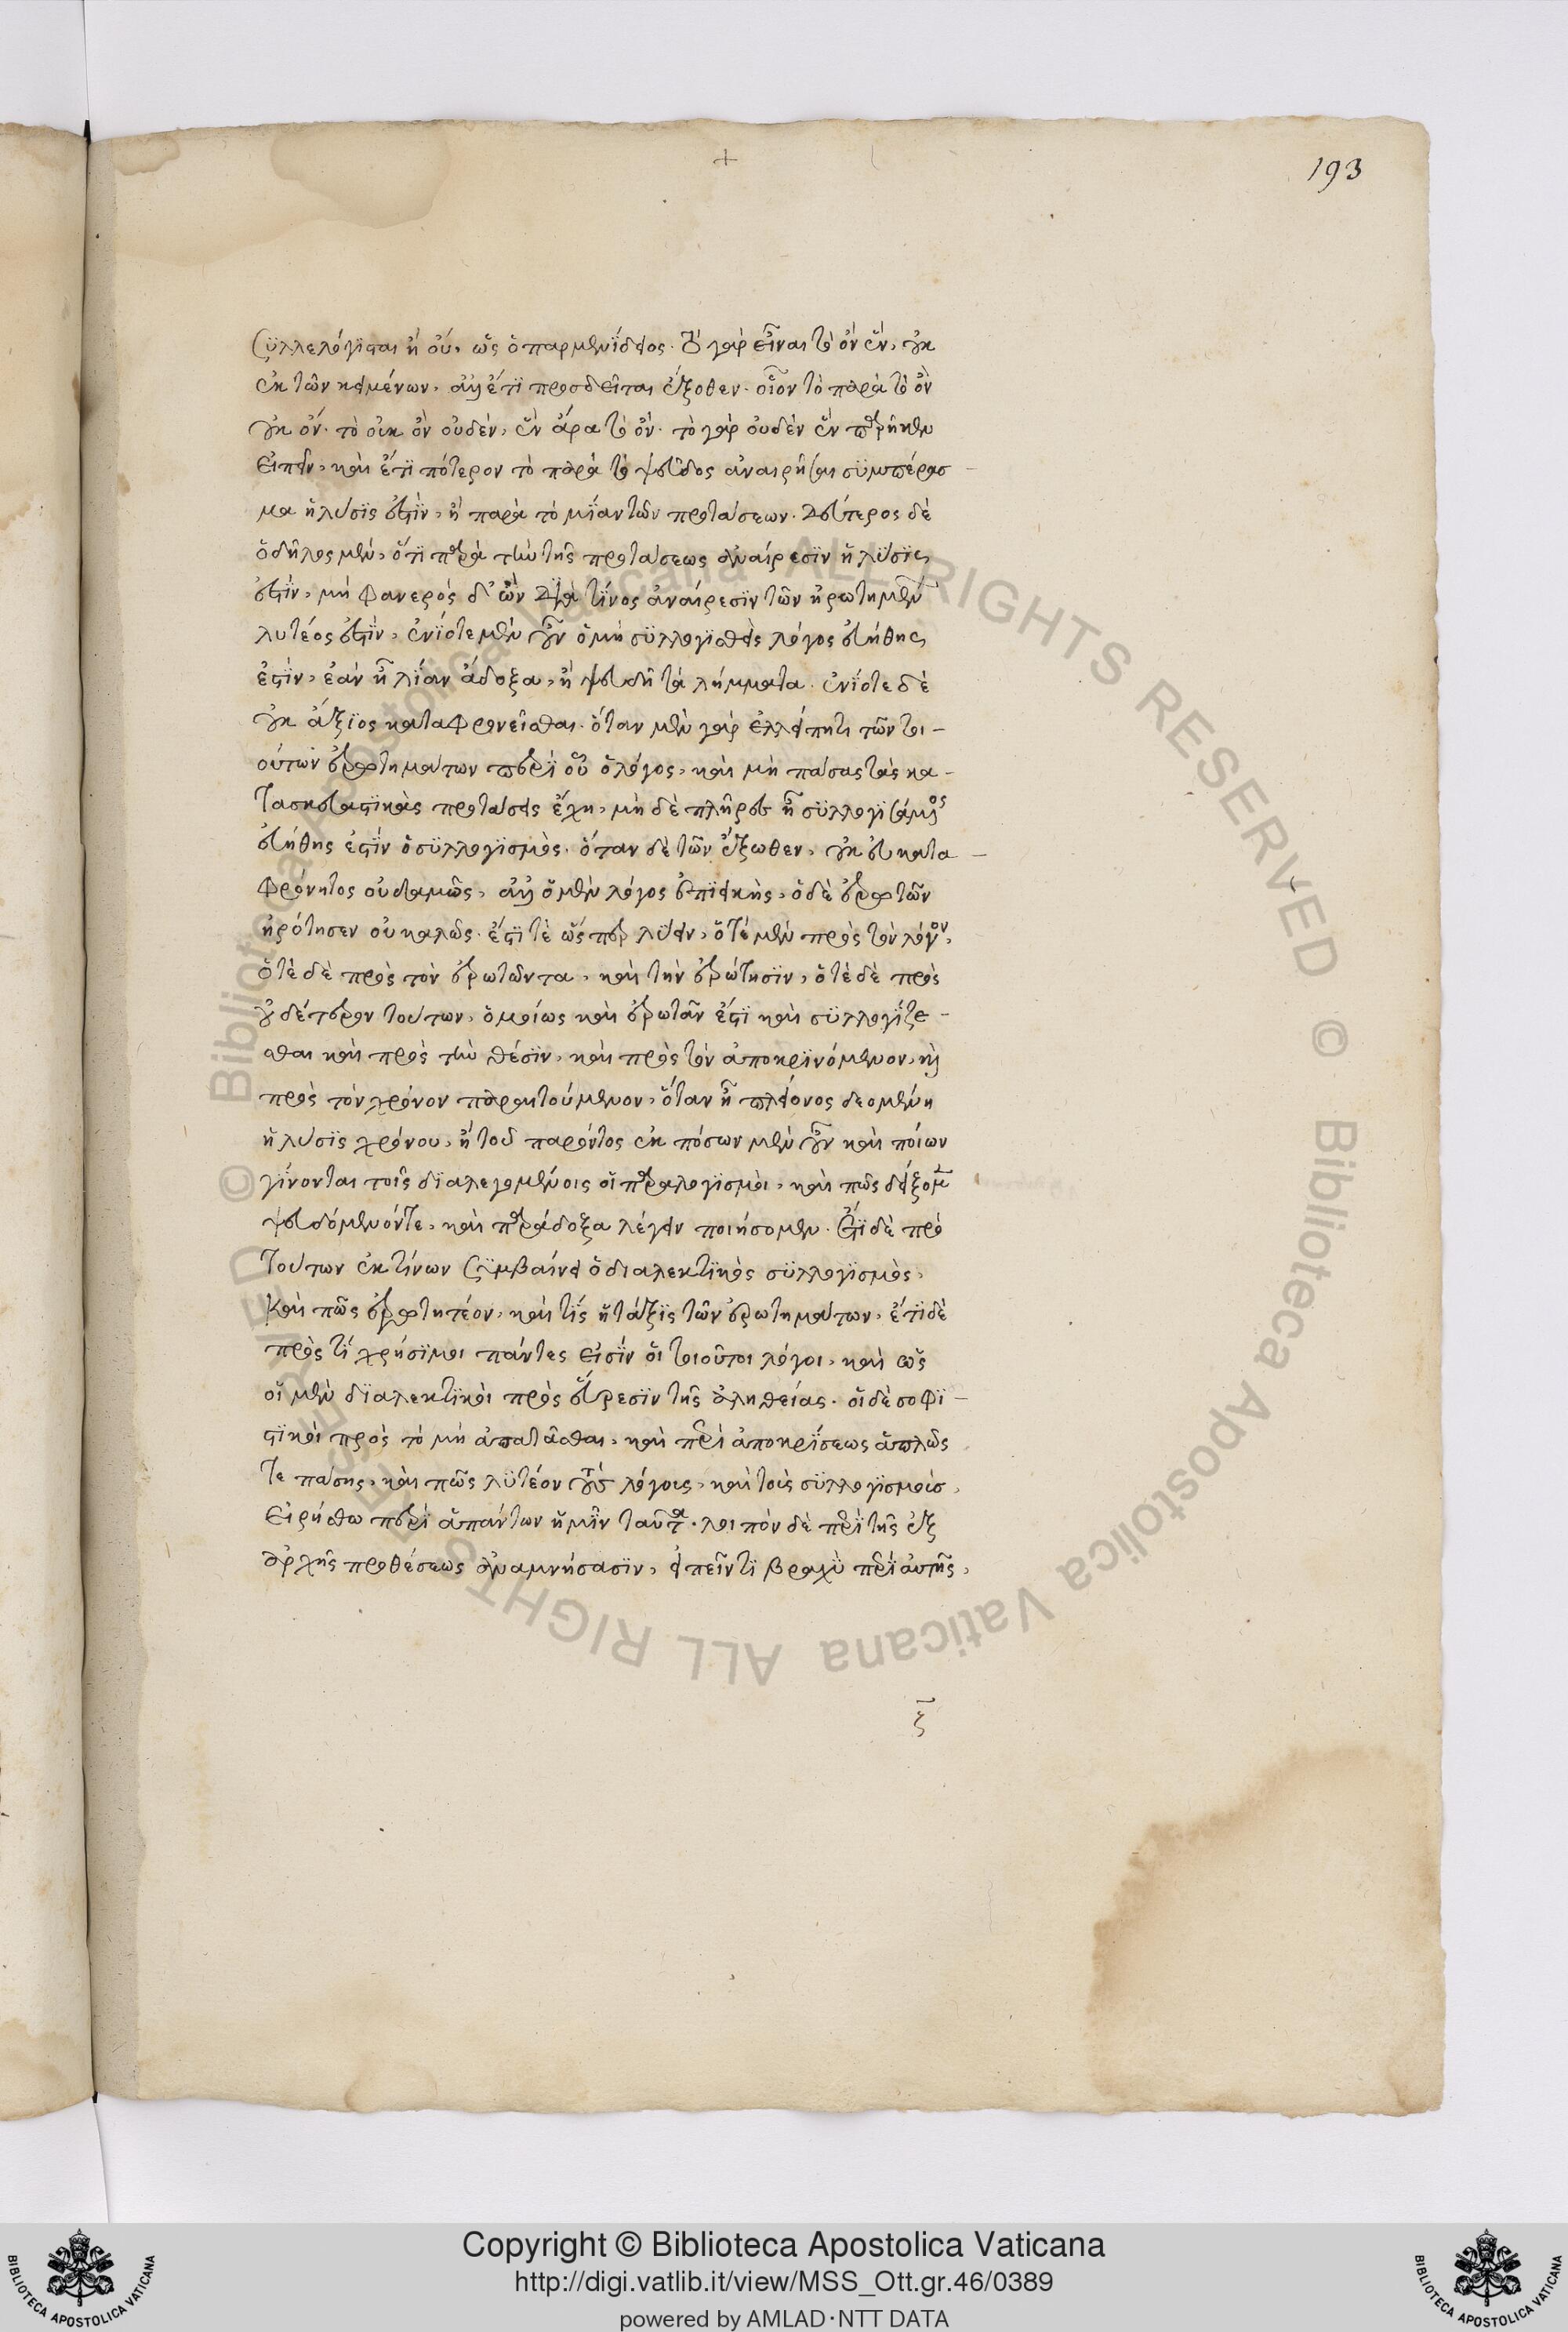 193
συλλελόγισται ἢ οὔ, ὡς ὁ παρμενίδειος. τὸ γὰρ εἶναι τὸ ὂν ἓν, οὐκ
ἐκ τῶν κειμένων, ἀλλ' ἔτι προσδεῖται ἔξοθεν. οἷον τὸ παρὰ τὸ ὂν
οὐκ ὄν. τὸ οὐκ ὂν οὐδὲν, ἓν ἄρα τὸ ὄν. τὸ γὰρ οὐδὲν ἓν παρῆκεν
εἰπεῖν, καὶ ἔτι πότερον τὸ παρὰ τὸ ψεῦδος ἀναιρῆσαι συμπέρασ-
μα ἡ λύσις ἐστὶν, ἢ παρὰ τὸ μίαν τῶν προτάσεων. Δεύτερος δὲ
ὁ δῆλος μὲν, ὅτι παρὰ τὴν τῆς προτάσεως ἀναίρεσιν ἡ λύσις
ἐστὶν, μὴ φανερὸς δ' ὢν διὰ τίνος ἀναίρεσιν τῶν ἠρωτημένων
λυτέος ἐστὶν, ἐνίοτε μὲν οὖν ὁ μὴ συλλογισθεὶς λόγος εὐήθης
ἐστὶν, ἐὰν ἦ λίαν ἄδοξα, ἢ ψευδῆ τὰ λήμματα. ἐνίοτε δὲ
οὐκ ἄξιος καταφρονεῖσθαι. ὅταν μὲν γὰρ ἐλλείπητι τῶν τοι-
ούτων ἐρωτημάτων περὶ οὗ ὁ λόγος, καὶ μὴ πάσας τὰς κα-
τασκευαστικὰς προτάσεις ἔχη, μὴ δὲ πλήρης ἦ συλλογισάμενος
εὐήθης ἐστὶν ὁ συλλογισμὸς. ὅταν δὲ τῶν ἔξωθεν, οὐκ εὐκατα-
φρόνητος οὐδαμῶς, ἀλλ' ὁ μὲν λόγος ἐπιεικὴς, ὁ δὲ ἐρωτῶν
ἠρότησεν οὐ καλῶς. ἔστι τὲ ὥσπερ λύειν, ὁτὲ μὲν πρὸς τὸν λόγον,
ὁτὲ δὲ πρὸς τὸν ἐρωτῶντα, καὶ τὴν ἐρώτησιν, ὁτὲ δὲ πρὸς
οὐδέτερον τούτων, ὁμοίως καὶ ἐρωτᾶν ἔστι καὶ συλλογίζε-
σθαι καὶ πρὸς τὴν θέσιν, καὶ πρὸς τὸν ἀποκρινόμενον, καὶ
πρὸς τὸν χρόνον παραιτούμενον, ὅταν ἦ πλείονος δεομένη
ἡ λύσις χρόνου, ἢ τοῦ παρόντος ἐκ πόσων μὲν οὖν καὶ ποίων
γίνονται τοῖς διαλεγομένοις οἱ παραλογισμοὶ, καὶ πῶς δείξομεν
ψευδόμενόντε, καὶ παράδοξα λέγειν ποιήσομεν. Ἔτι δὲ πρὸ
τούτων ἐκ τίνων συμβαίνει ὁ διαλεκτικὸς συλλογισμὸς,
καὶ πῶς ἐρωτητέον, καὶ τίς ἡ τάξις τῶν ἐρωτημάτων, ἔτι δὲ
πρὸς τί χρήσιμοι πάντες εἰσὶν οἱ τοιοῦτοι λόγοι, καὶ ὡς
οἱ μὲν διαλεκτικοὶ πρὸς εὕρεσιν τῆς ἀληθείας. οἱ δὲ σοφι-
στικοὶ πρὸς τὸ μὴ ἀπατᾶσθαι, καὶ περὶ ἀποκρίσεως ἁπλῶς
τε πάσης, καὶ πῶς λυτέον τοὺς λόγους, καὶ τοὺς συλλογισμοὺς,
Εἰρήσθω περὶ ἁπάντων ἡμῖν ταῦτα. λοιπὸν δὲ περὶ τῆς ἐξ
ἀρχῆς προθέσεως ἀναμνήσασιν, εἰπεῖν τι βραχὺ περὶ αὐτῆς,
ξ
Copyright © Biblioteca Apostolica Vaticana
http://digi.vatlib.it/view/MSS_Ott.gr.46/0389
powered by AMLAD·NTT DATA